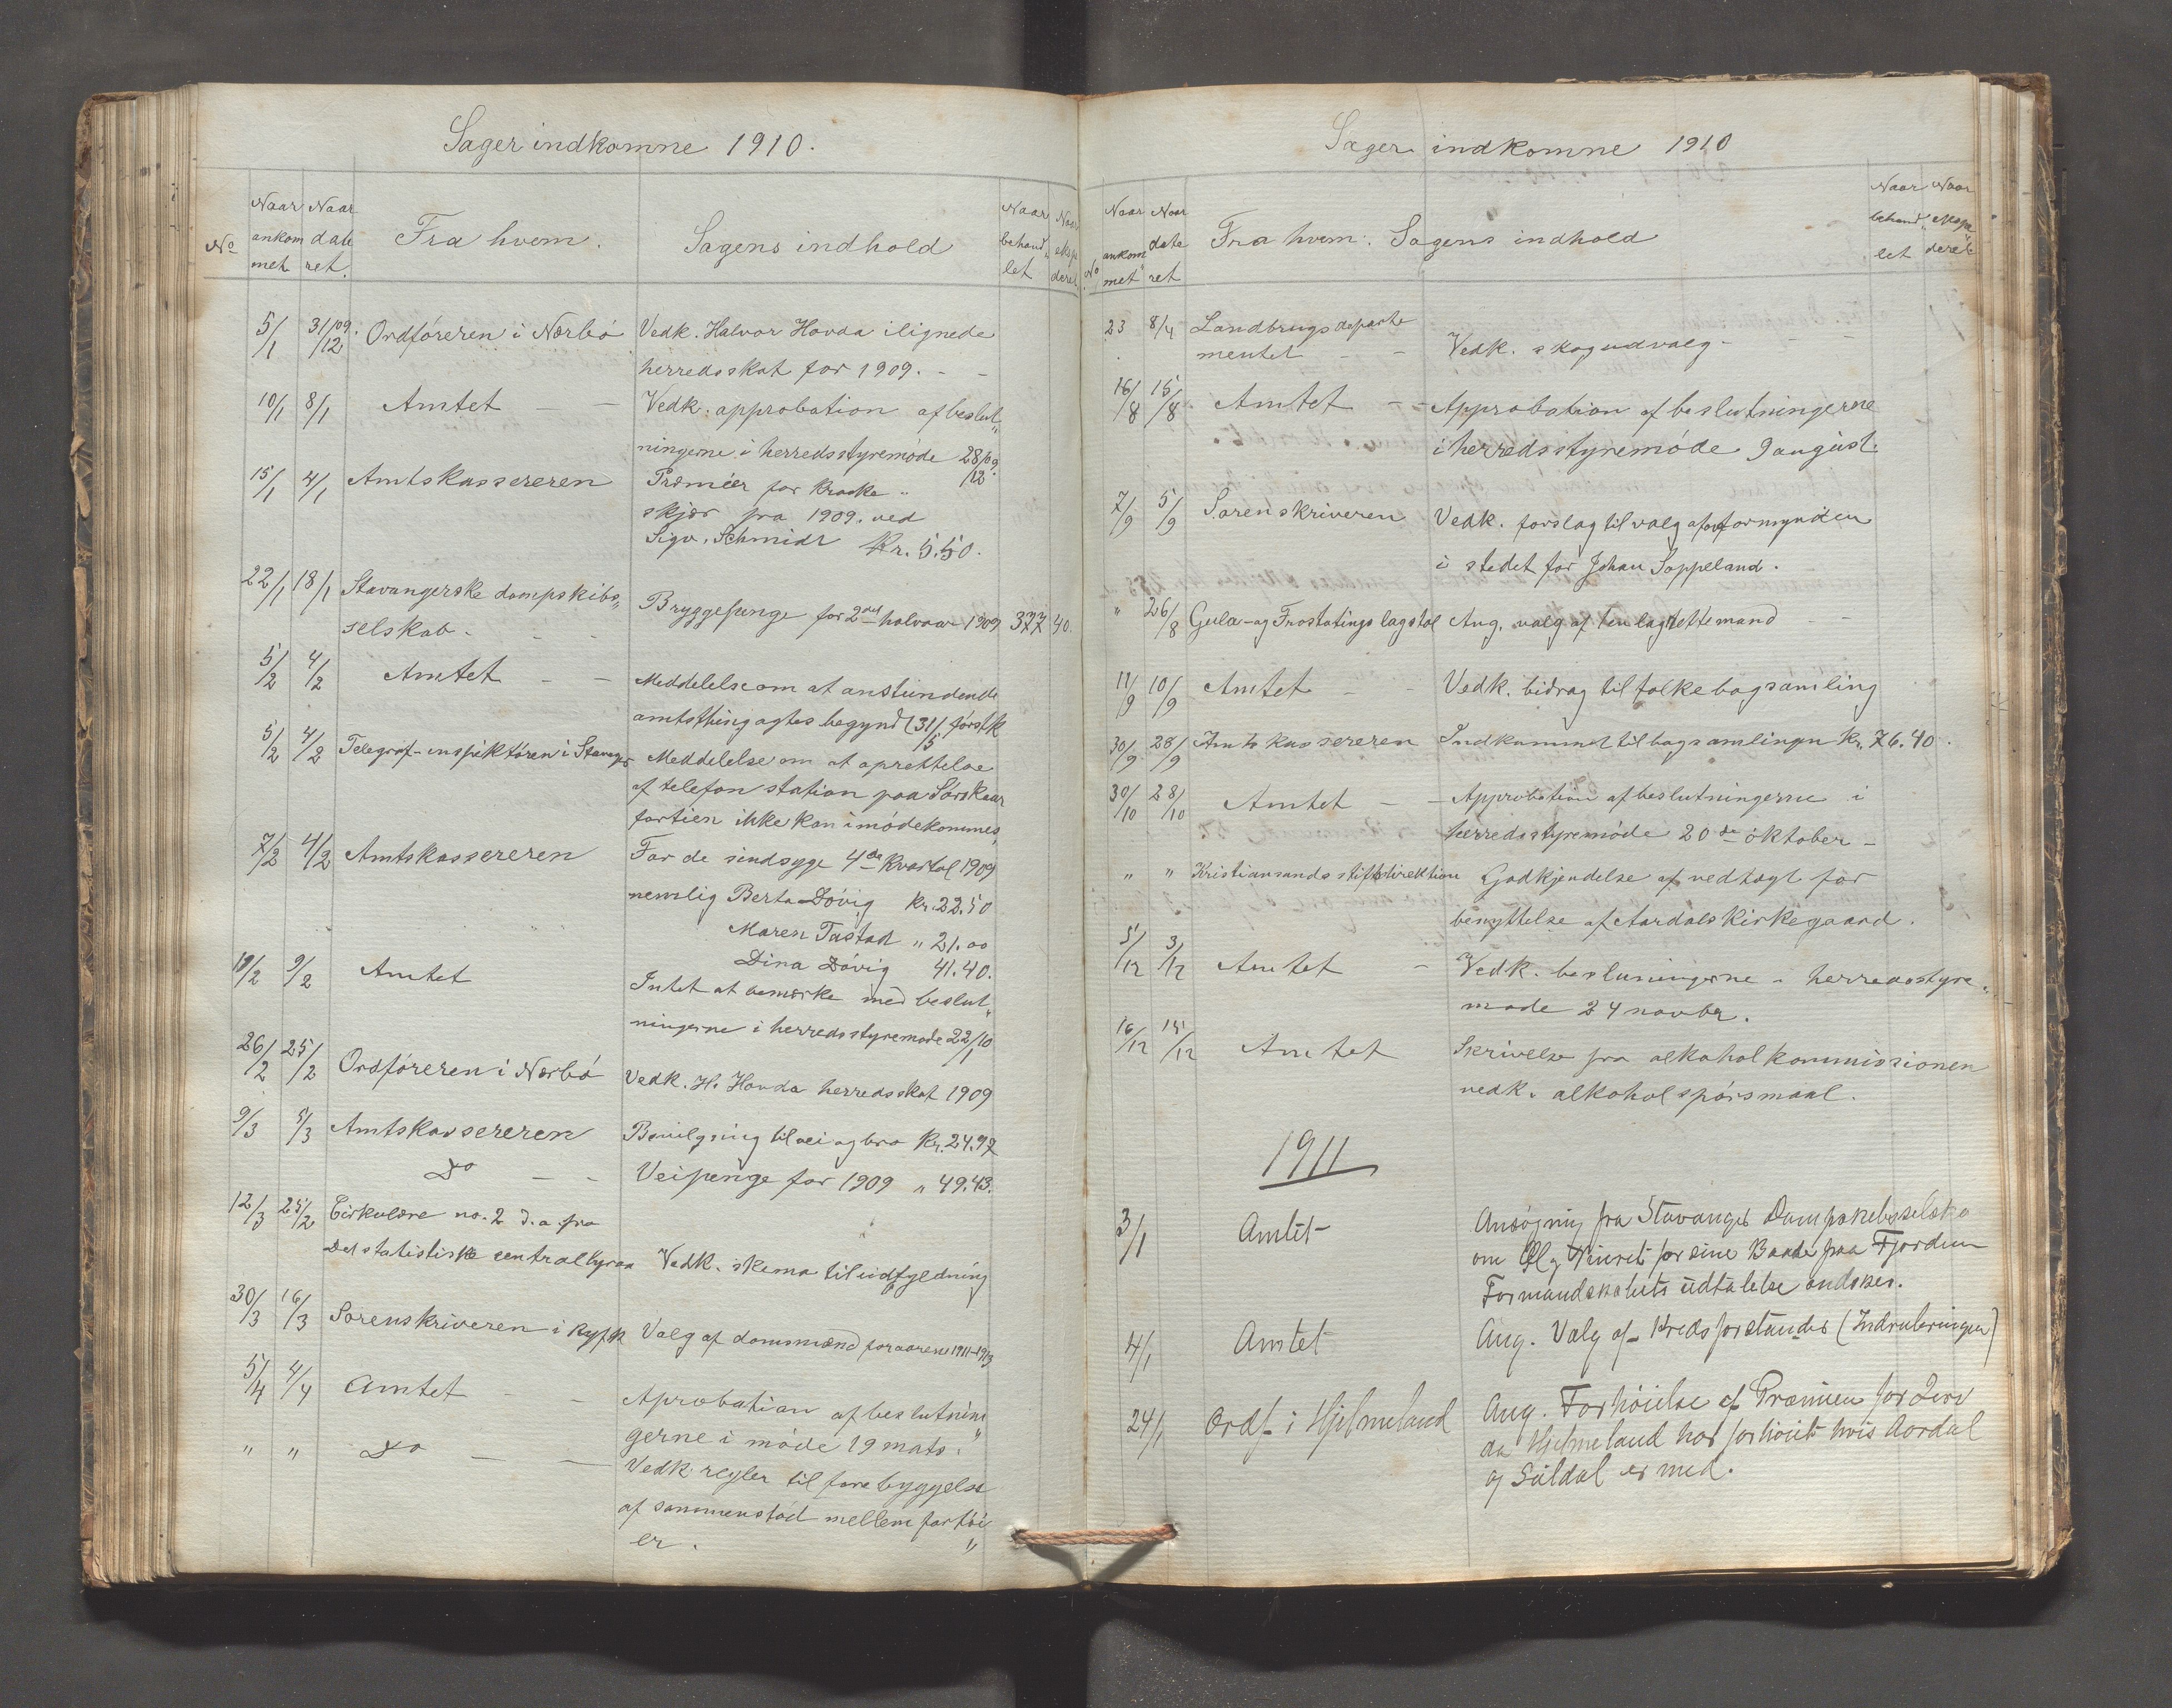 Sager indkomne 1910.
No
Naar ankom met
Naar date ret.
Fra hvem.
Sagens indhold
Naar behand„ let
Naar ekspe deret
5/1 31/12 09. Ordføreren i Nærbø Vedk. Halvor Hovda ilignede
herredsskat for 1909. - -
10/1 8/1 Amtet — — Vedk. approbation af beslut„
ningerne i herredsstyremøde 28/12 09.
15/1 4/1 Amtskassereren Præmier for kraake„
skjær fra 1909. ved
Sigv. Schmidt Kr. 5.50.
22/1 18/1 Stavangerske dampskibs„
selskab. - - Bryggepenge for 2det halvaar 1909 377 40.
5/2 4/2 Amtet - — Meddelelse om at anstundende
amtsthing agtes begynd (31/5 førstk
5/2 4/2 Telegraf-inspektøren i Stavanger Meddelelse om at oprettelse
af telefon station paa Sørskaar
fortien ikke kan imødekommes,
7/2 4/2 Amtskassereren For de sindsyge 4de Kvartal 1909
nemlig Berta Døvig Kr. 22.50
Maren Tastad „ 21.00
Dina Døvig 41.40.
10/2 9/2 Amtet Intet at bemærke med beslut„
ningerne i herredsstyremøde 22/1 10
26/2 25/2 Ordføreren i Nærbø Vedk. H. Hovda herredsskat 1909
9/3 5/3 Amtskassereren Bevilgning til vei og bro Kr. 24.97
Do — - Veipenge for 1909 „ 49.43.
12/3 25/2 Cirkulære no. 2 d. a fra
Det statistiske centralbyraa Vedk. skema til udfyldning
30/3 16/3 Sorenskriveren i Ryfk Valg af domsmænd for aarene 1911-1913
5/4 4/4 Amtet - - Aprobation af beslutnin„
gerne i møde 19 mats.
" " Do — — Vedk. regler til forebyggelse
af sammenstød mellem fartøi„
er.
Sager indkomne 1910
No
Naar ankom met
Naar date ret
Fra hvem.
Sagens indhold
Naar behand„ let
Naar ekspe„ deret
23 8/4 Landbrugsdeparte
mentet - - Vedk. skogudvalg - - -
16/8 15/8 Amtet - - Approbation af beslutningerne
i herredsstyremøde 9 august.
7/9 5/9 Sorenskriveren Vedk. forslag til valg af overformynder
i stedet for Johan Soppeland.
" 26/8 Gula- og Frostatings lagstol Ang. valg af ten lagrettemand - -
11/9 10/9 Amtet - - Vedk. bidrag til folkebogsamling
30/9 28/9 Amtskassereren Indkommet til bogsamlingen Kr. 76.40.
30/10 28/10 Amtet - - Approbation af beslutningerne i
herredsstyremøde 20de oktober -
" " Kristiansands stiftsdirektion Godkjendelse af vedtægt for
benyttelse af Aardals Kirkegaard.
5/12 3/12 Amtet - Vedk. besluningerne i herredsstyre„
møde 24 novbr.
16/12 15/12 Amtet Skrivelse fra alkoholkommissionen
vedk. alkoholspørsmaal.
1911
3/1 Amtet Ansøgning fra Stavanger Dampskebsselska
om Øl og Vinret for sine Baade paa Fjorden
Formandskabets udtalelse ønskes.
4/1 Amtet Ang. Valg af Kredsforstander (Indrulleringen)
24/1 Ordf i Hjelmeland Ang. Forhøielse af Præmien for
da Hjelmeland har forhøiet hvis Aardal
og Suldal er med.